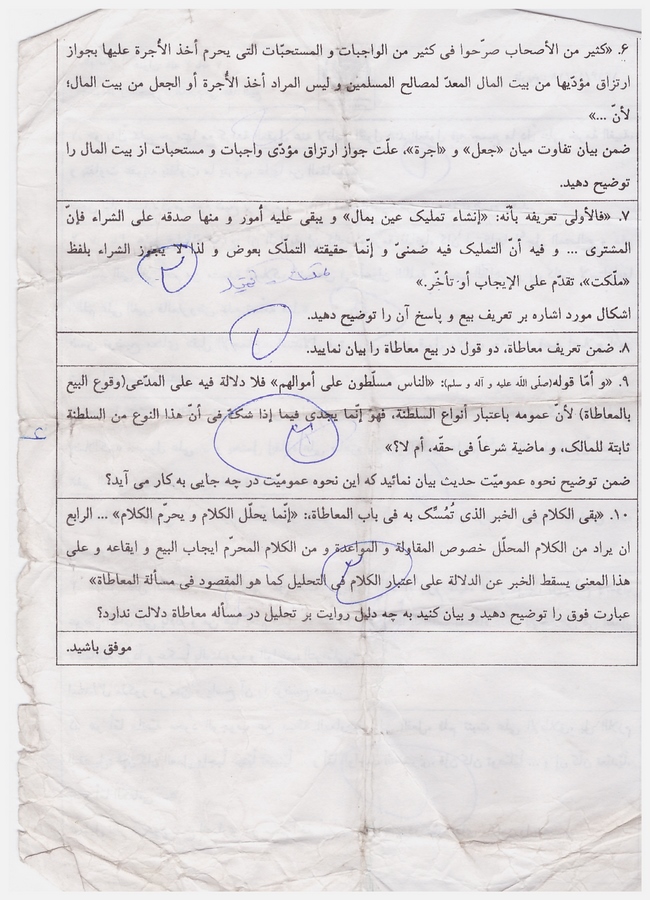 ۶. «کثیر من الأصحاب صرّحوا فی کثیر من الواجبات و المستحبّات التی یحرم أخذ الأجرة علیها بجواز
ارتزاق مؤدّیها من بیت المال المعدّ لمصالح المسلمین و لیس المراد أخذ الأجرة أو الجعل من بیت المال؛
لأنّ ...»
ضمن بیان تفاوت میان «جعل» و «اجرة»، علّت جواز ارتزاق مؤدّی واجبات و مستحبات از بیت المال را
توضیح دهید.
۷. «فالأولی تعریفه بأنّه: «إنشاء تملیک عین بمال» و یبقی علیه أمور و منها صدقه علی الشراء فإنّ
المشتری ... و فیه أنّ التملیک فیه ضمنیّ و إنّما حقیقته التملّک بعوض و لذا لا یجوز الشراء بلفظ
«ملّکت»، تقدّم علی الإیجاب أو تأخّر.»
اشکال مورد اشاره بر تعریف بیع و پاسخ آن را توضیح دهید.
۸. ضمن تعریف معاطاة، دو قول در بیع معاطاة را بیان نمایید.
۹. «و أمّا قوله(صلّی اللّه علیه و آله و سلم): «الناس مسلّطون علی أموالهم» فلا دلالة فیه علی المدّعی(وقوع البیع
بالمعاطاة) لأنّ عمومه باعتبار أنواع السلطنة، فهو إنّما یجدی فیما إذا شکّ فی أنّ هذا النوع من السلطنة
ثابتة للمالک، و ماضیة شرعاً فی حقّه، أم لا؟»
ضمن توضیح نحوه عمومیّت حدیث بیان نمائید که این نحوه عمومیّت در چه جایی به کار می آید؟
۱۰. «بقی الکلام فی الخبر الذی تُمُسِّک به فی باب المعاطاة،: «إنّما یحلّل الکلام و یحرّم الکلام» ... الرابع
ان یراد من الکلام المحلّل خصوص المقاولة و المواعدة و من الکلام المحرّم ایجاب البیع و ایقاعه و علی
هذا المعنی یسقط الخبر عن الدلالة علی اعتبار الکلام فی التحلیل کما هو المقصود فی مسألة المعاطاة»
عبارت فوق را توضیح دهید و بیان کنید به چه دلیل روایت بر تحلیل در مسأله معاطاة دلالت ندارد؟
موفق باشید.